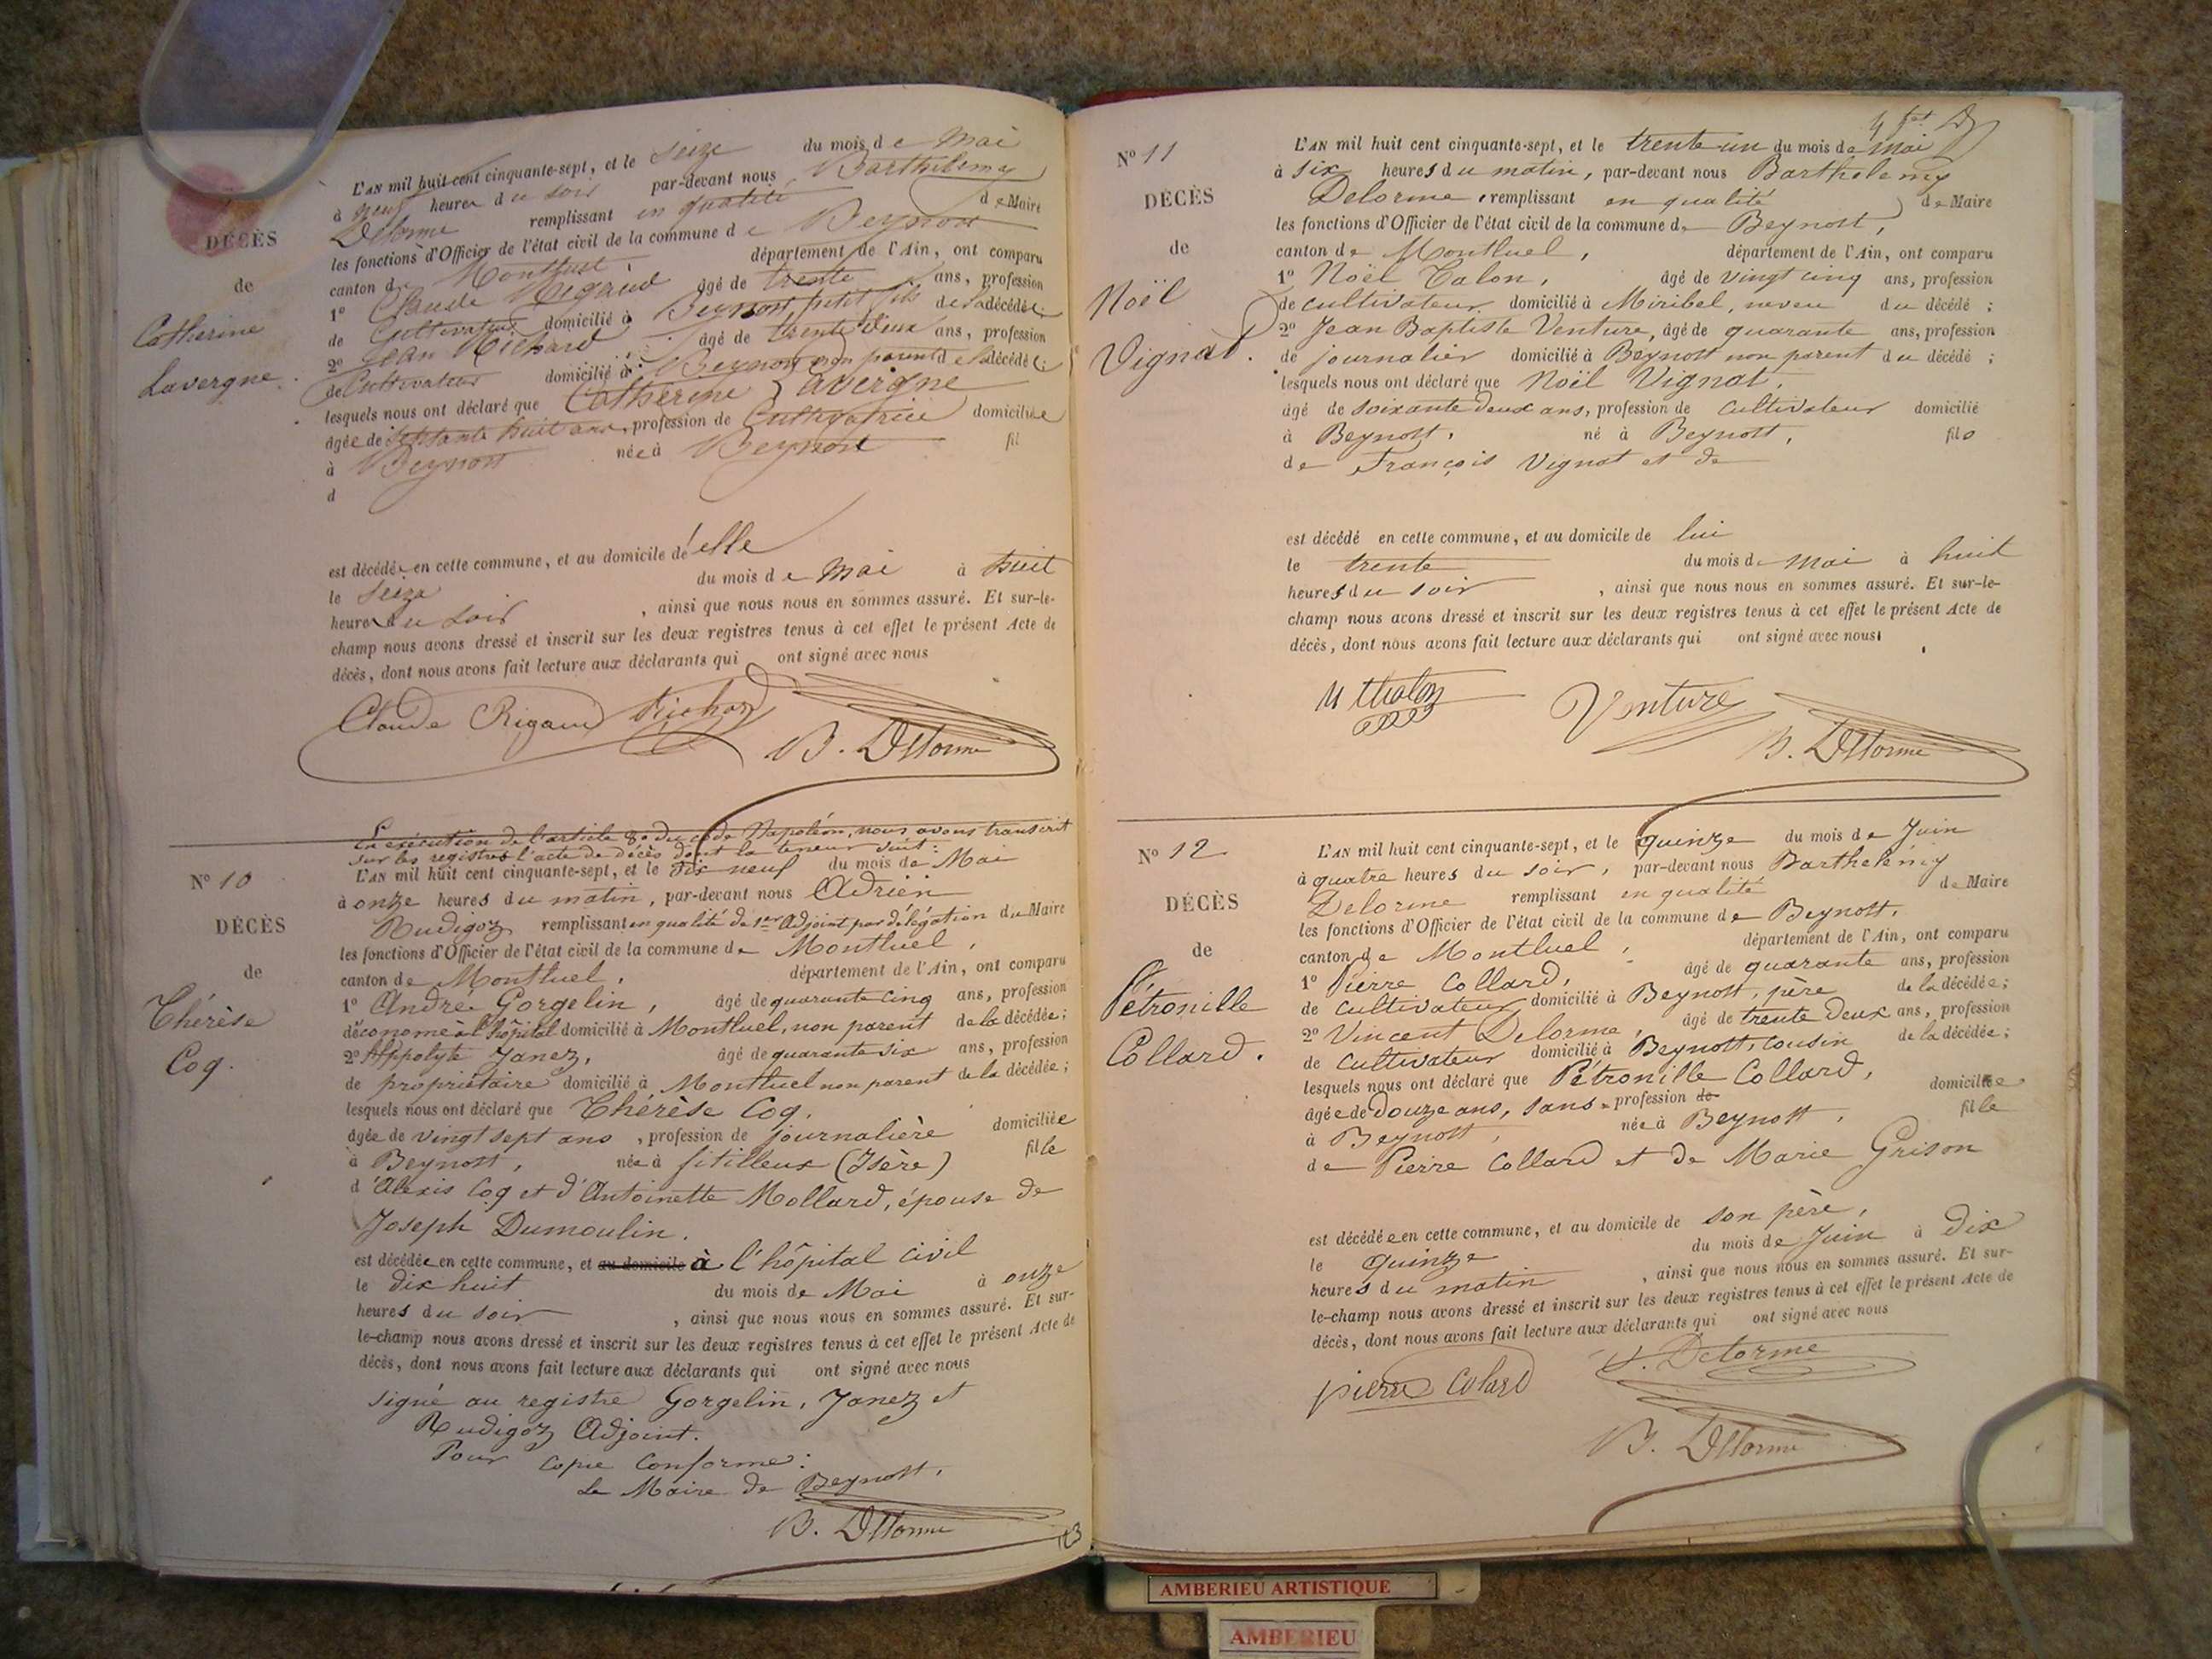 DÉCÈS
de
Catherine
Lavergne.
L'AN mil huit cent cinquante-sept, et le seize du mois de Mai
à neuf heures du soir par-devant nous Barthelemy
Delorme remplissant en qualité de Maire
les fonctions d'Officier de l'état civil de la commune de Beynost
canton de Montluel, département de l'Ain, ont comparu
1º Claude Rigaud âgé de trente ans, profession
de Cultivateur domicilié à Beynost petit fils de la décédée;
2º Jean Richard âgé de trente deux ans, profession
de Cultivateur domicilié à Beynost non parent de la décédée;
lesquels nous ont déclaré que Catherine Lavergne
âgée de septante huit ans, profession de Cultivatrice domiciliée
à Beynost née à Beynost fil
d
est décédée en cette commune, et au domicile d'elle
le seize du mois de Mai à huit
heures du soir, ainsi que nous nous en sommes assuré. Et sur-le-
champ nous avons dressé et inscrit sur les deux registres tenus à cet effet le présent Acte de
décès, dont nous avons fait lecture aux déclarants qui ont signé avec nous
Claude Rigaud Richard
B. Delorme
Nº 10
DÉCÈS
de
Thérèse
Coq.
En exécution de l'article 80 du code Napoléon, nous avons transcrit
sur les registres l'acte de décès dont la teneur suit:
L'AN mil huit cent cinquante-sept, et le dix neuf du mois de Mai
à onze heures du matin, par-devant nous Adrien
Rudigoz remplissant en qualité de 1er Adjoint par délégation du Maire
les fonctions d'Officier de l'état civil de la commune de Montluel,
canton de Montluel, département de l'Ain, ont comparu
1º André Gorgelin, âgé de quarante cinq ans, profession
d'économe à l'hôpital domicilié à Montluel, non parent de la décédée;
2º Hippolyte Janez, âgé de quarante six ans, profession
de propriétaire domicilié à Montluel non parent de la décédée;
lesquels nous ont déclaré que Thérèse Coq,
âgée de vingt sept ans, profession de journalière domiciliée
à Beynost, née à fitilleux (Isère) fille
d'Alexis Coq et d'Antoinette Mollard, épouse de
Joseph Dumoulin.
est décédée en cette commune, et au domicile à l'hôpital civil
le dix huit du mois de Mai à onze
heures du soir, ainsi que nous nous en sommes assuré. Et sur-
le-champ nous avons dressé et inscrit sur les deux registres tenus à cet effet le présent Acte de
décès, dont nous avons fait lecture aux déclarants qui ont signé avec nous
signé au registre Gorgelin, Janez et
Rudigoz Adjoint.
Pour copie conforme:
Le Maire de Beynost,
B. Delorme
Nº 11
DÉCÈS
de
Noël
Vignat.
L'AN mil huit cent cinquante-sept, et le trente-un du mois de mai
à six heures du matin, par-devant nous Barthelemy
Delorme, remplissant en qualité de Maire
les fonctions d'Officier de l'état civil de la commune de Beynost,
canton de Montluel, département de l'Ain, ont comparu
1º Noël Talon, âgé de vingt cinq ans, profession
de cultivateur domicilié à Miribel, neveu du décédé;
2º Jean Baptiste Venture, âgé de quarante ans, profession
de journalier domicilié à Beynost non parent du décédé;
lesquels nous ont déclaré que Noël Vignat,
âgé de soixante deux ans, profession de cultivateur domicilié
à Beynost, né à Beynost, fils
de François Vignat et de
est décédé en cette commune, et au domicile de lui
le trente du mois de Mai à huit
heures du soir, ainsi que nous nous en sommes assuré. Et sur-le-
champ nous avons dressé et inscrit sur les deux registres tenus à cet effet le présent Acte de
décès, dont nous avons fait lecture aux déclarants qui ont signé avec nous
Venture
B. Delorme
Nº 12
DÉCÈS
de
Pétronille
Collard.
L'AN mil huit cent cinquante-sept, et le quinze du mois de Juin
à quatre heures du soir, par-devant nous Barthelémy
Delorme remplissant en qualité de Maire
les fonctions d'Officier de l'état civil de la commune de Beynost,
canton de Montluel, département de l'Ain, ont comparu
1º Pierre Collard, âgé de quarante ans, profession
de cultivateur domicilié à Beynost, père de la décédée;
2º Vincent Delorme, âgé de trente deux ans, profession
de cultivateur domicilié à Beynost, cousin de la décédée;
lesquels nous ont déclaré que Pétronille Collard,
âgée de douze ans, sans profession de domiciliée
à Beynost, née à Beynost, fille
de Pierre Collard et de Marie Grison
est décédée en cette commune, et au domicile de son père,
le quinze du mois de Juin à dix
heures du matin, ainsi que nous nous en sommes assuré. Et sur-
le-champ nous avons dressé et inscrit sur les deux registres tenus à cet effet le présent Acte de
décès, dont nous avons fait lecture aux déclarants qui ont signé avec nous
pierre Colard Delorme
B. Delorme
AMBERIEU ARTISTIQUE
AMBERIEU